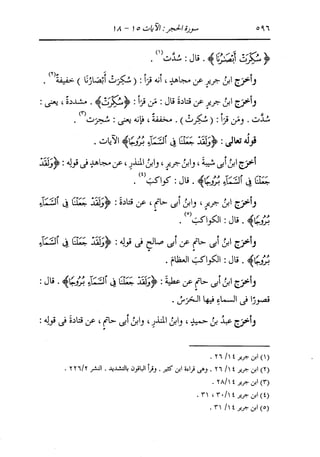 ٥٩٦ سورة الحجر : الآيات ١٥ - ١٨
﴿سُكِّرَتْ أَبْصَارُنَا﴾ . قال : سُدَّت(١) .
وأخرَج ابنُ جريرٍ عن مجاهدٍ ، أنه قرَأ : ( سُكِرَتْ أَبْصَارُنَا ) خفيفةً(٢) .
وأخرَج ابنُ جريرٍ عن قتادةَ قال : مَن قرَأ : ﴿سُكِّرَتْ﴾ . مشددةً ، يعنى :
سُدَّت . ومَن قرَأ : ( سُكِرَتْ ) . مخففةً ، فإنه يعنى : سُحِرَت(٣) .
قولُه تعالى : ﴿وَلَقَدْ جَعَلْنَا فِى ٱلسَّمَآءِ بُرُوجًا﴾ الآيات .
أخرَج ابنُ أبى شيبةَ ، وابنُ جريرٍ ، وابنُ المنذرِ ، عن مجاهدٍ فى قولِه : ﴿وَلَقَدْ
جَعَلْنَا فِى ٱلسَّمَآءِ بُرُوجًا﴾ . قال : كواكبَ(٤) .
وأخرَج ابنُ جريرٍ ، وابنُ أبى حاتمٍ ، عن قتادةَ : ﴿وَلَقَدْ جَعَلْنَا فِى ٱلسَّمَآءِ
بُرُوجًا﴾ . قال : الكواكبَ(٥) .
وأخرَج ابنُ أبى حاتمٍ عن أبى صالحٍ فى قولِه : ﴿وَلَقَدْ جَعَلْنَا فِى ٱلسَّمَآءِ
بُرُوجًا﴾ . قال : الكواكبَ العظامَ .
وأخرَج ابنُ أبى حاتمٍ عن عطيةَ : ﴿وَلَقَدْ جَعَلْنَا فِى ٱلسَّمَآءِ بُرُوجًا﴾ . قال :
قصورًا فى السماءِ فيها الحَرَسُ .
وأخرَج عبدُ بنُ حميدٍ ، وابنُ المنذرِ ، وابنُ أبى حاتمٍ ، عن قتادةَ فى قولِه :
(١) ابن جرير ٢٦/١٤ .
(٢) ابن جرير ٢٦/١٤ . وهى قراءة ابن كثير . وقرأ الباقون بالتشديد . النشر ٢٢٦/٢ .
(٣) ابن جرير ٢٨/١٤ .
(٤) ابن جرير ٣٠/١٤ ، ٣١ .
(٥) ابن جرير ٣١/١٤ .